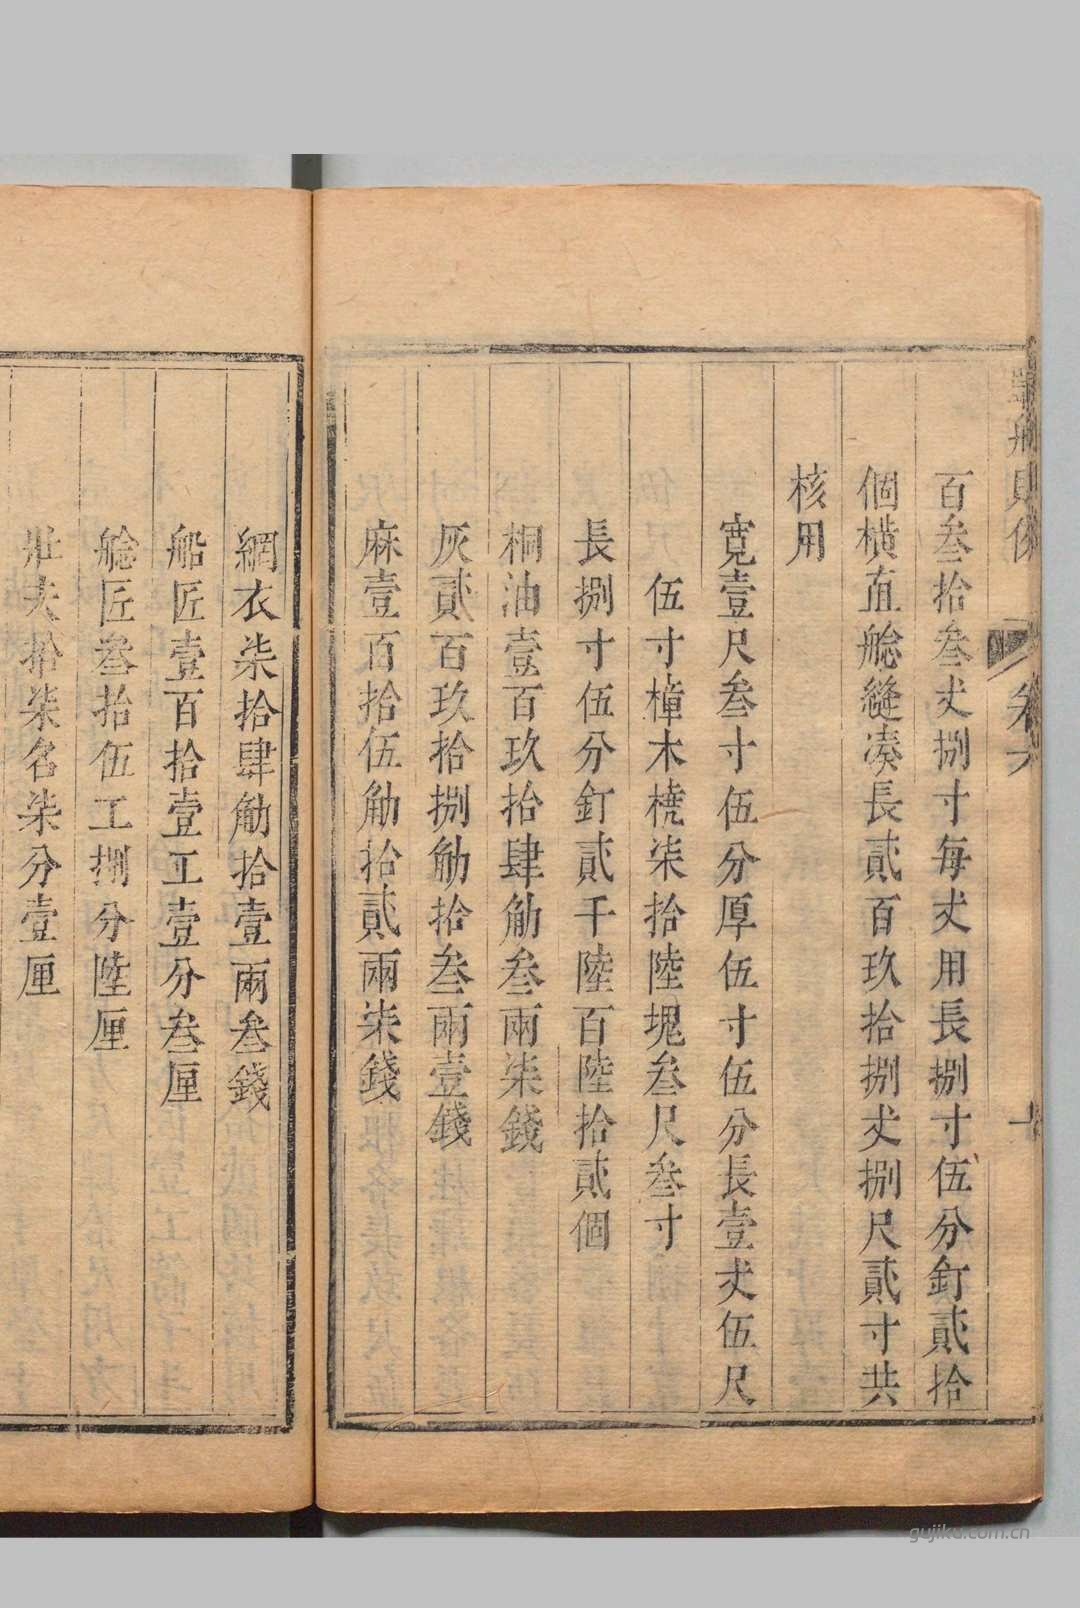 戰船則例
卷六
百叁拾叁丈捌寸每丈用長捌寸伍分釘貳拾
個橫直艌縫湊長貳百玖拾捌丈捌尺貳寸共
核用
寬壹尺叁寸伍分厚伍寸伍分長壹丈伍尺
伍寸樟木橈柒拾陸塊叁尺叁寸
長捌寸伍分釘貳千陸百陸拾貳個
桐油壹百玖拾肆觔叁兩柒錢
灰貳百玖拾捌觔拾叁兩壹錢
麻壹百拾伍觔拾貳兩柒錢
網衣柒拾肆觔拾壹兩叁錢
船匠壹百拾壹工壹分叁厘
艌匠叁拾伍工捌分陸厘
壯夫拾柒名柒分壹厘
gujika.com.cn